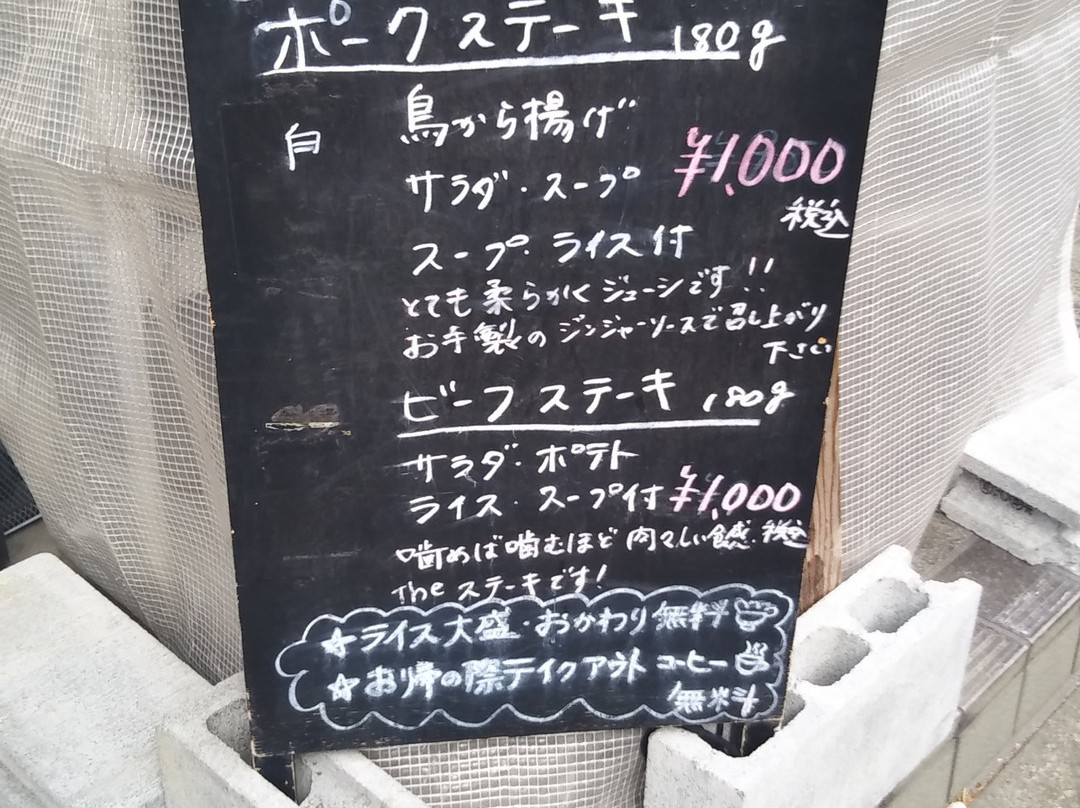 ポークステーキ 180g
鳥から揚げ
サラダ・スープ ¥1,000
税込
スープ・ライス付
とても柔らかくジューシです!!
お手製のジンジャーソースで召し上がり
下さい
ビーフステーキ 180g
サラダ・ポテト
ライス・スープ付 ¥1,000
噛めば噛むほど肉々しい食感. 税込
Theステーキです!
☆ライス大盛・おかわり無料
☆お帰の際テイクアウトコーヒー
無料